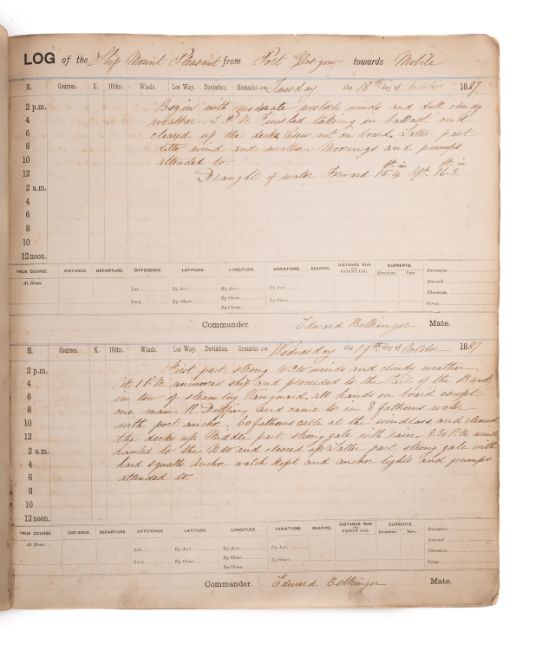 LOG of the Ship Mount Pleasant from Port Glasgow towards Mobile
H. Courses. K. 10ths. Winds. Lee Way. Deviation. Remarks on Tuesday the 18th day of October 1887
2 p.m. Begins with moderate winds and dull cloudy
4 weather. P.M. Finished taking in ballast and
6 cleared up the decks Crew not on board. Latter part
8 ditto wind and weather. Moorings and pumps
10 attended to
12 Draught of water Forward 15.4 Aft 16.3
2 a.m.
4
6
8
10
12 noon.
TRUE COURSE DISTANCE. DEPARTURE. DIFFERENCE LATITUDE. LONGITUDE. VARIATIONS BEARING. DISTANCE RUN PATENT LOG. CURRENTS.
At Noon. Lat. By Acct. By Acct. By Acct. Direction. Rate. Barometer
Long. By Obser. By Obser. By Obser. Therm.
By Chron.
Commander. Edward Bellinger Mate.
H. Courses. K. 10ths. Winds. Lee Way. Deviation. Remarks on Wednesday the 19th day of October 1887
2 p.m. First part strong winds and cloudy weather
4 At 1 P.M. unmoored ship and proceded to the Tail of the Bank
6 in tow of steam tug Vanguard, all hands on board except
8 one man R. and came to in 8 fathoms water
10 with port anchor: 60 fathoms cable at the windlass and cleared
12 the decks up Middle part strong gale with rain. 8.30 P.M. wind
2 a.m. hauled to the and cleared up Latter part strong gale with
4 hard squalls anchor watch kept and anchor lights and pumps
6 attended to
8
10
12 noon.
TRUE COURSE DISTANCE. DEPARTURE. DIFFERENCE LATITUDE. LONGITUDE. VARIATIONS BEARING. DISTANCE RUN PATENT LOG. CURRENTS.
At Noon. Lat. By Acct. By Acct. By Acct. Direction. Rate. Barometer
Long. By Obser. By Obser. By Obser. Therm.
By Chron.
Commander. Edward Bellinger Mate.